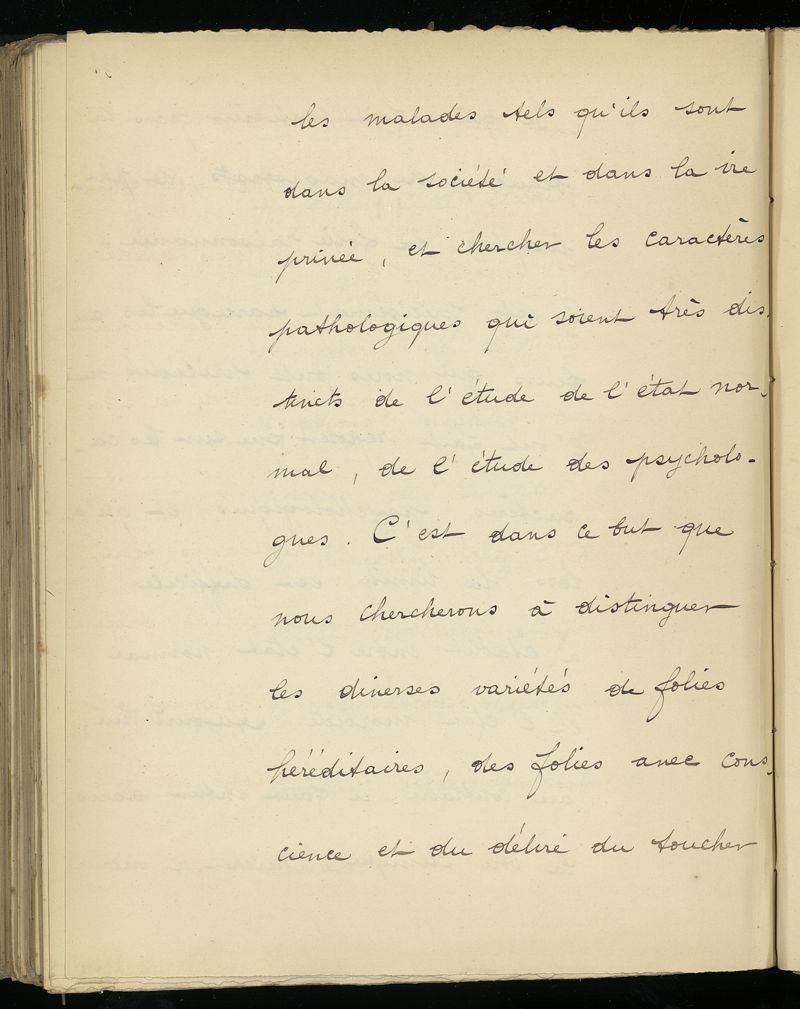 les malades tels qu'ils sont
dans la société et dans la vie
privée, et chercher les caractères
pathologiques qui soient très dis-
tincts de l'étude de l'état nor-
mal, de l'étude des psycholo-
gues. C'est dans ce but que
nous chercherons à distinguer
les diverses variétés de folies
héréditaires, des folies avec cons-
cience et du délire du toucher